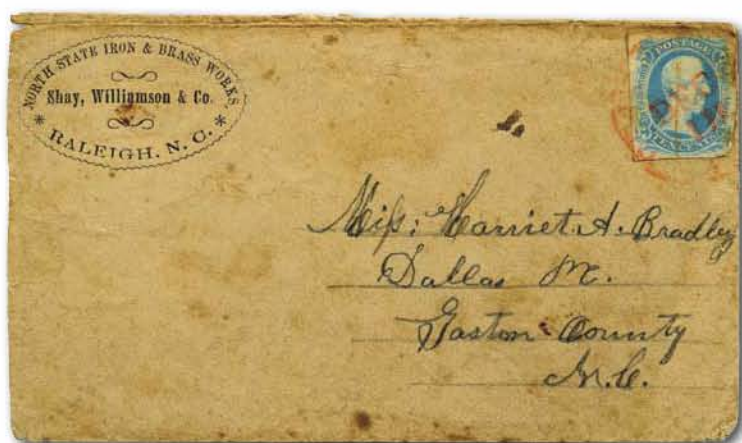 NORTH STATE IRON & BRASS WORKS,
Shay, Williamson & Co.
* RALEIGH, N. C. *
POSTAGE
TEN CENTS
DEC
Miſs: Harriet A. Bradley
Dallas
Gaston County
N.C.